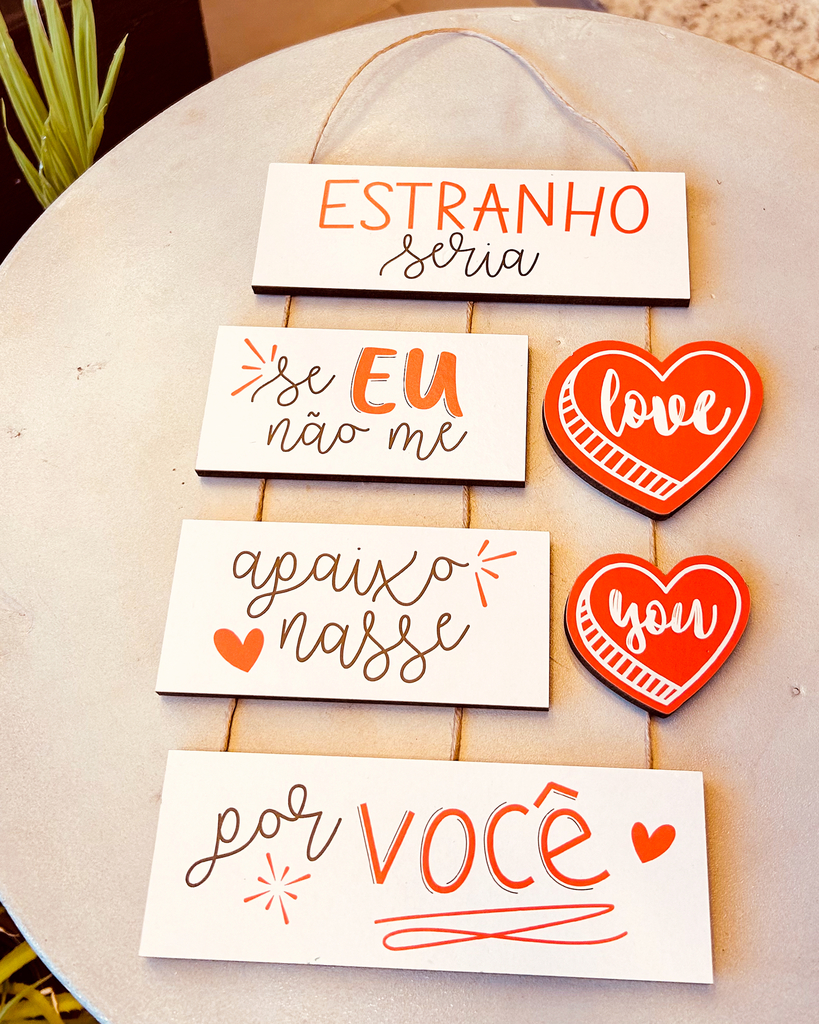 ESTRANHO
seria
se EU
não me
love
apaixo
nasse
you
por VOCÊ